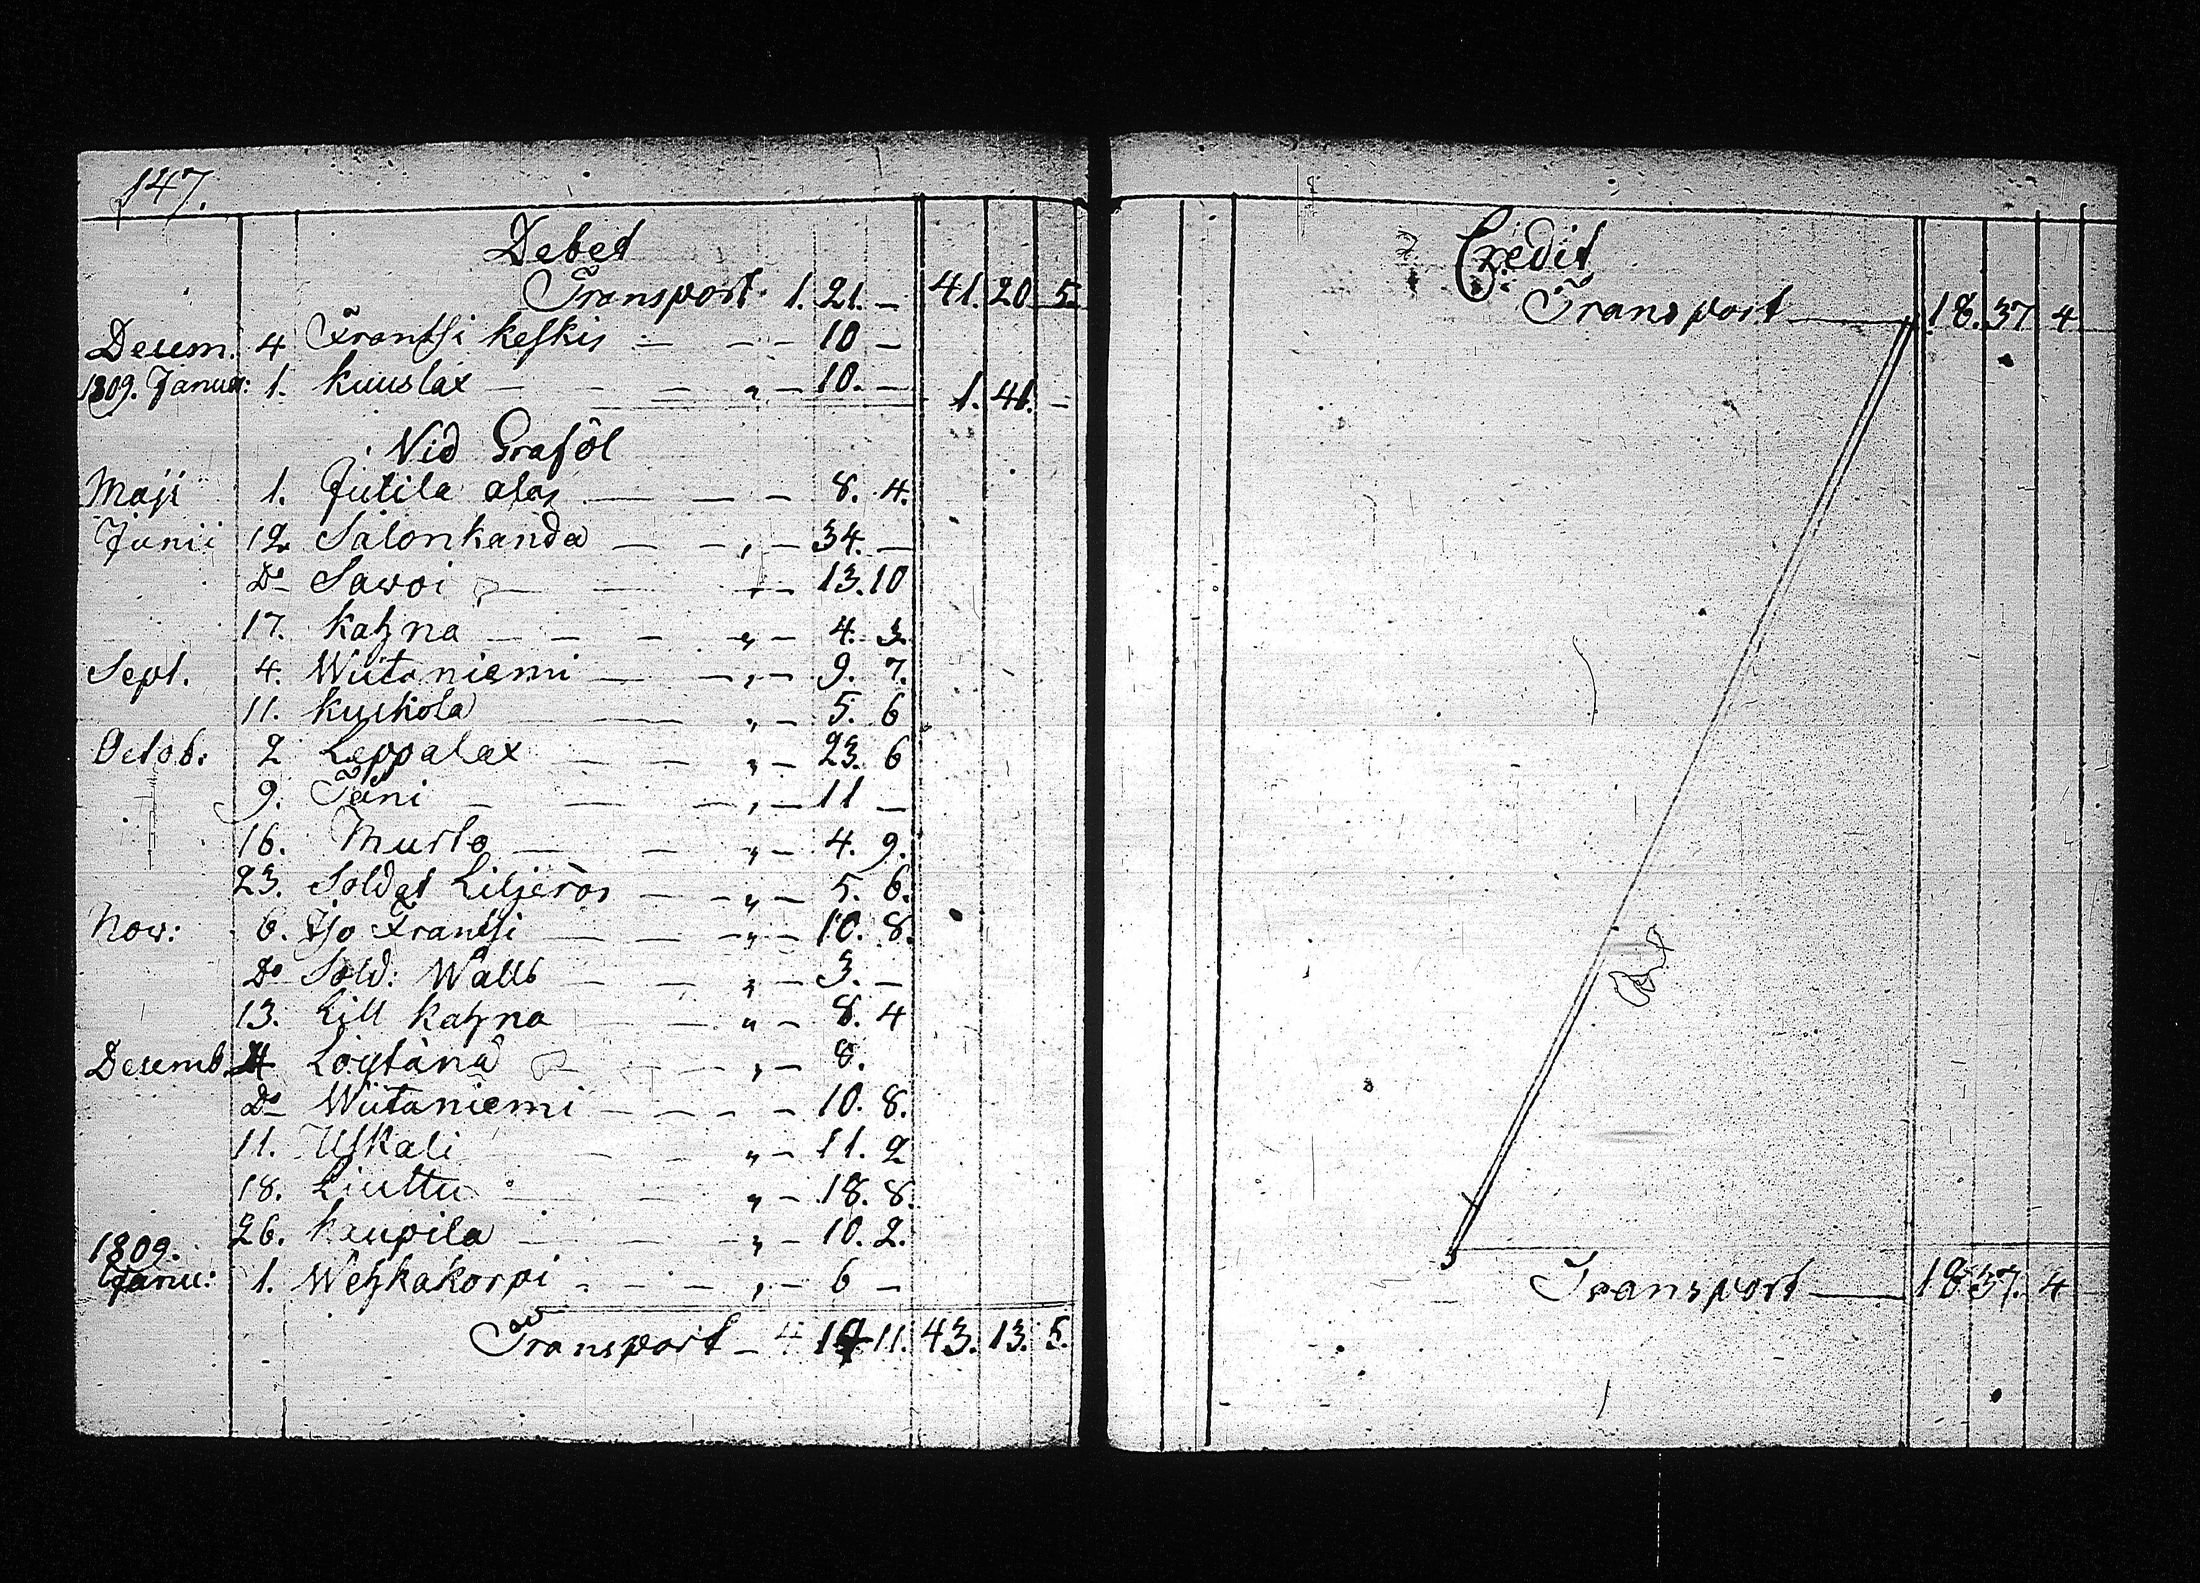 147.
Debet
Transport 1. 21. — 41. 20 5
Decem. 4 Frantsi keskis — — — 10 —
1809. Janua: 1. kuuslax — — — " — 10. — 1. 41. —
Vid Graföl
Maji 1. Jutila alas — — — 8. 4.
Junii 12. Salonkanda — — " — 34. —
Do Sawoi — — " — 13. 10
17. kahna — — — " — 4. 3.
Sept. 4. Wiitaniemi — — " — 9. 7.
11. kuckola — — " — 5. 6
Octob: 2 Leppalax — — " — 23. 6
9. Täni — — — " — 11 —
16. Murto — — " — 4. 9.
23. Soldat Liljeros — — " — 5. 6.
Nov: 6. Iso Frantsi — — — " — 10. 8.
Do Sold: Wallb — — " — 3. —
13. Lill kahna — — " — 8. 4
Decemb. 4 Löytänä — — " — 8.
Do Wiitaniemi — — — — 10. 8.
11. Uskali — — " — 11. 2
18. Liuttu — — " — 18. 8.
26. kaupila — — " — 10. 2.
1809.
Janu: 1. Wehkakorpi — — — " — 6 —
Transport — 4 14 11. 43. 13. 5.
Credit
Transport — 18. 37 4
Transport — 18. 37. 4